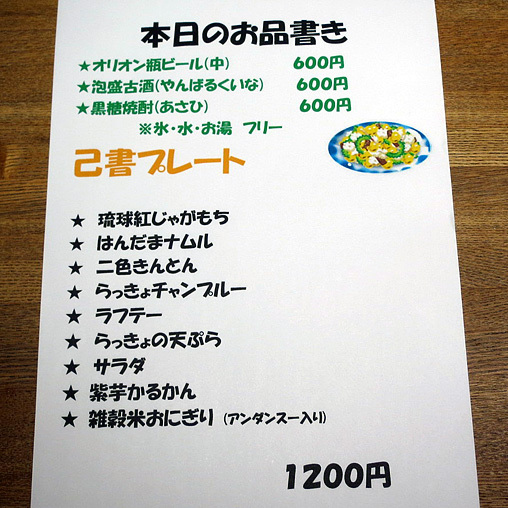 本日のお品書き
★オリオン瓶ビール(中) 600円
★泡盛古酒(やんばるくいな) 600円
★黒糖焼酎(あさひ) 600円
※氷・水・お湯 フリー
己書プレート
★ 琉球紅じゃがもち
★ はんだまナムル
★ 二色きんとん
★ らっきょチャンプルー
★ ラフテー
★ らっきょの天ぷら
★ サラダ
★ 紫芋かるかん
★ 雑穀米おにぎり (アンダンスー入り)
1200円